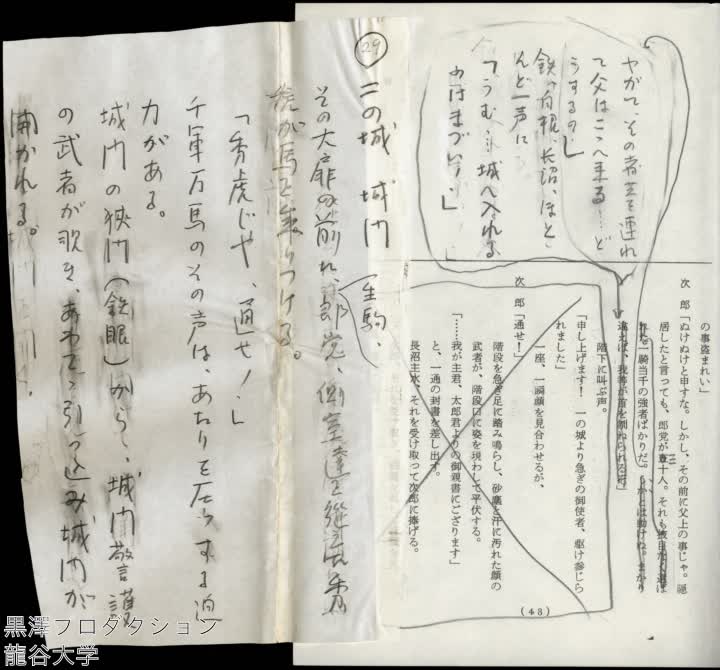 やがて、その者共を連れ
て父はこゝへ来る……ど
うするのじ」
鉄、白根、長沼、ほと
んど一声に
「うむ……城へ入れる
のはまづい……」
の事盗まれい」
次　郎「ぬけぬけと申すな。しかし、その前に父上の事じゃ。隠
居したと言っても、郎党が三十人。それも
一騎当千の強者ばかりだ。しかとは動けぬ。まかり
違えば、我等が首を刎ねられるぞ」
階下に叫ぶ声。
「申し上げます！　一の城より急ぎの御使者、駆け参じら
れました」
一座、一瞬顔を見合わせるが、
次　郎「通せ！」
階段を急ぎ足に踏み鳴らし、砂塵と汗に汚れた顔の
武者が、階段口に姿を現わして平伏する。
「……我が主君、太郎君よりの御親書にござります」
と、一通の封書を差し出す。
長沼主水、それを受け取って次郎に捧げる。
(48)
29
二の城　城門
生駒、
その大扉の前に、郎党、側室達を従え秀
虎が馬を乗りつける。
「秀虎じゃ、通せ！」
千軍万馬のその声は、あたりを圧する迫
力がある。
城門の狭間(鉄眼)から、城門警護
の武者が覗き、あわてゝ引っ込み城門が
開かれる。
黒澤プロダクション
龍谷大学